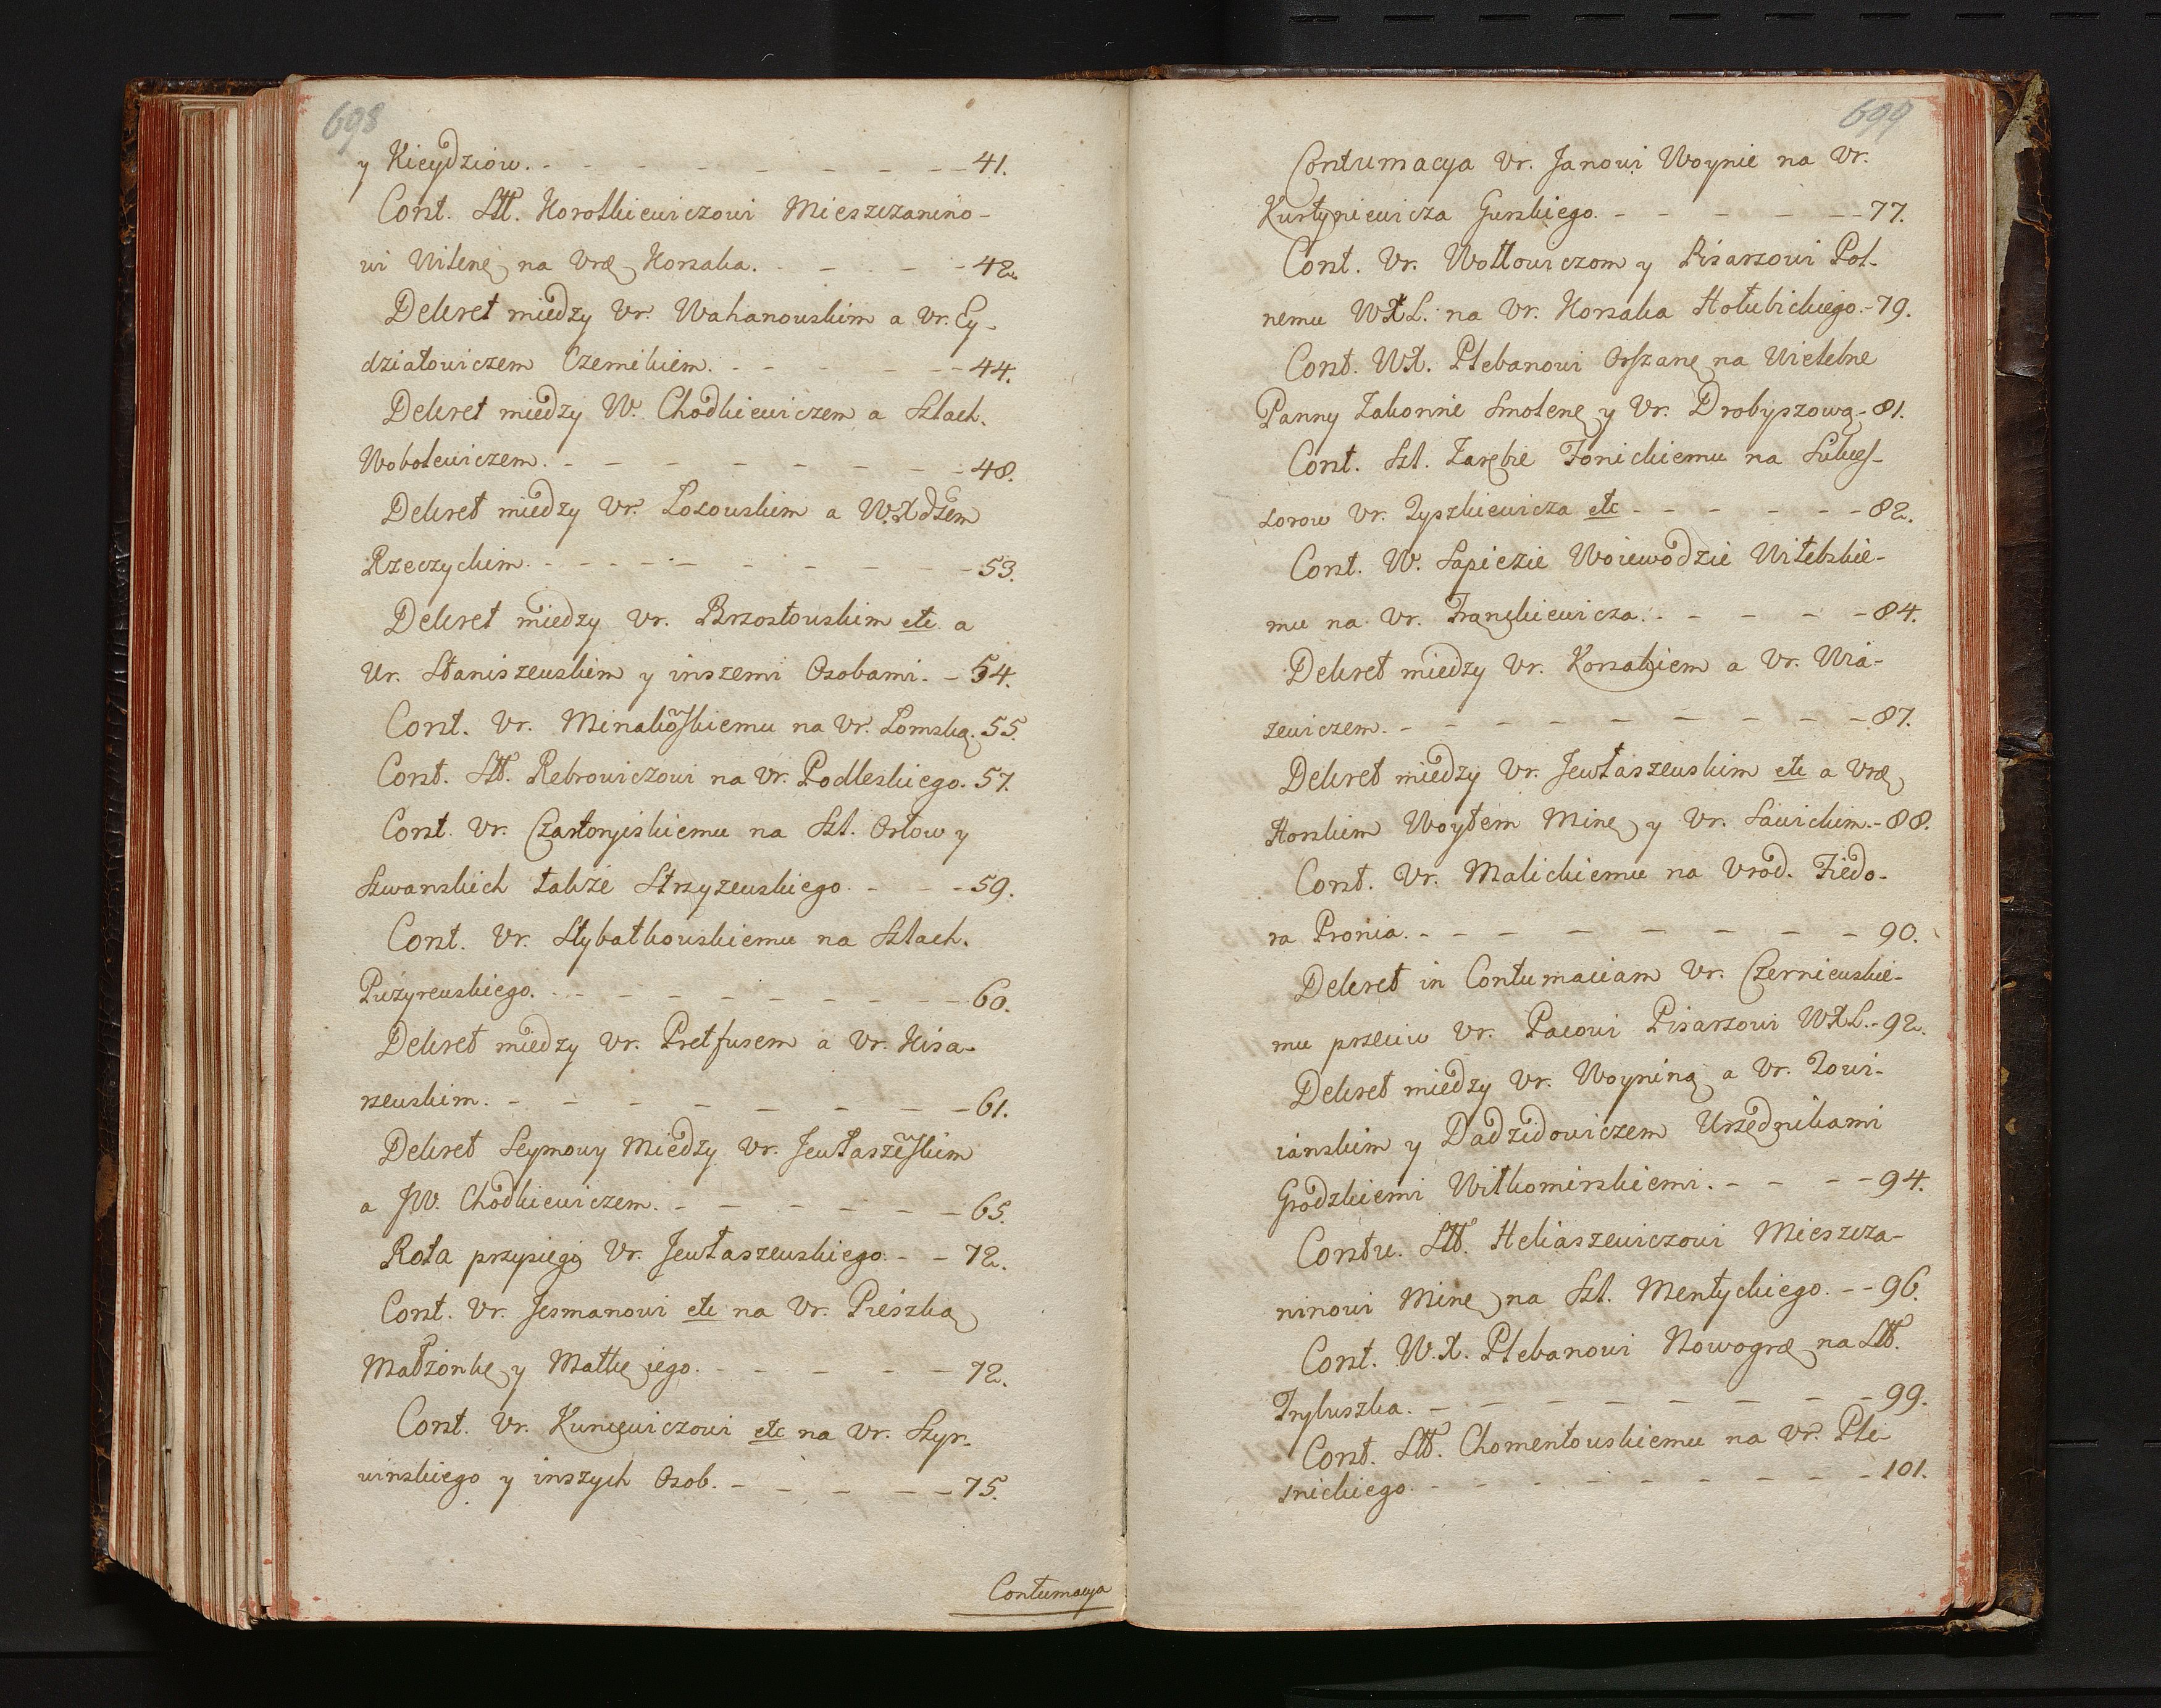 698
y Kieydziow. - - - - - - - - 41.
Cont. Sttt. Korotkiewiczowi Mieszczanino-
wi Witene na Uræ Korsaka. - - - - 42.
Dekret miedzy Ur. Wahanowskim a Ur. Ey-
dziatowiczem Czemikiem. - - - - - 44.
Dekret miedzy W. Chodkiewiczem a Szlach.
Wobolewiczem. - - - - - - - - 48.
Dekret miedzy Ur. Lozowskim a W.Xdzem
Rzeczyckim. - - - - - - - - - 53.
Dekret miedzy Ur. Brzostowskim etc. a
Ur. Staniszewskim y inszemi Osobami. - 54.
Cont. Ur. Minakowskiemu na Ur. Lomską. 55.
Cont. Stt. Rebrowiczowi na Ur. Podleskiego. 57.
Cont. Ur. Czartoryiskiemu na Szl. Orłow y
Szwanskich także Strzyzewskiego. - - - 59.
Cont. Ur. Stybałkowskiemu na Szlach.
Puzyrewskiego. - - - - - - - - - 60.
Dekret miedzy Ur. Pretfusem a Ur. Kisa-
rzewskim. - - - - - - - - 61.
Dekret Seymowy Miedzy Ur. Jewłaszewskim
a JW. Chodkiewiczem. - - - - - - 65.
Rota przysięgi Ur. Jewłaszewskiego. - - 72.
Cont. Ur. Jesmanowi etc na Ur. Pieszka
Małżonkę y Matkę jego. - - - - - 72.
Cont. Ur. Kuncewiczowi etc na Ur. Szyr-
winskiego y inszych Osob. - - - - - 75.
Contumacya
699
Contumacya Ur. Janowi Woynie na Ur.
Kurtyniewicza Gurskiego. - - - - - 77.
Cont. Ur. Wołłowiczom y Pisarzowi Pol-
nemu WXL. na Ur. Korsaka Hołubickiego. - 79.
Cont. WX. Plebanowi Orszanę na Wielebne
Panny Zakonne Smolenę y Ur. Drobyszową - 81.
Cont. Szl. Zarębie Fonickiemu na Sukces-
sorow Ur. Tyszkiewicza etc - - - - - 82.
Cont. W. Sapiezie Woiewodzie Witebskie-
mu na Ur. Franckiewicza. - - - - - 84.
Dekret miedzy Ur. Korsakiem a Ur. Wia-
zewiczem. - - - - - - - - - 87.
Dekret miedzy Ur. Jewłaszewskim etc a Uræ
Horskim Woytem Minę y Ur. Sawickim. - 88.
Cont. Ur. Malickiemu na Urod. Fiedo-
ra Pronia. - - - - - - - - - 90.
Dekret in Contumaciam Ur. Czerniewskie-
mu przeciw Ur. Pacowi Pisarzowi WXL. - 92.
Dekret miedzy Ur. Woyniną a Ur. Towi-
ianskim y Dadzidowiczem Urzędnikami
Grodzkiemi Wiłkomirskiemi. - - - - 94.
Contu. Sttt. Heliaszewiczowi Mieszcza-
ninowi Minę na Szl. Mentyckiego. - - 96.
Cont. W.X. Plebanowi Nowogræ na Stt.
Tryluszka. - - - - - - - - 99.
Cont. Stt. Chomentowskiemu na Ur. Ple
snickiego. - - - - - - - - - 101.